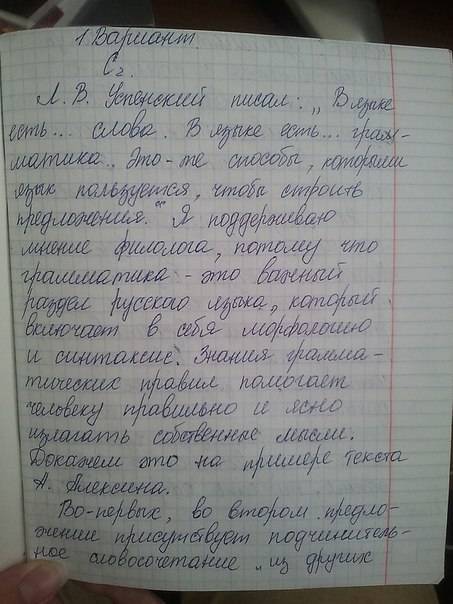 1. Вариант.
С2.
Л. В. Успенский писал: „В языке
есть... слова. В языке есть... грам-
матика. Это-те способы, которыми
язык пользуется, чтобы строить
предложения.“ Я поддерживаю
мнение филолога, потому что
грамматика - это важный
раздел русского языка, который
включает в себя морфологию
и синтаксис. Знания грамма-
тических правил помогает
человеку правильно и ясно
излагать собственные мысли.
Докажем это на примере текста
А. Алексина.
Во-первых, во втором предло-
жении присутствует подчинитель-
ное словосочетание „из других